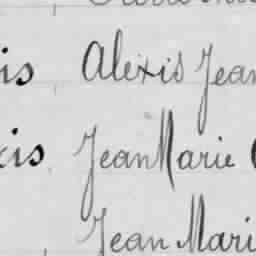 is Alexis Jean
cis Jean Marie
Jean Mari